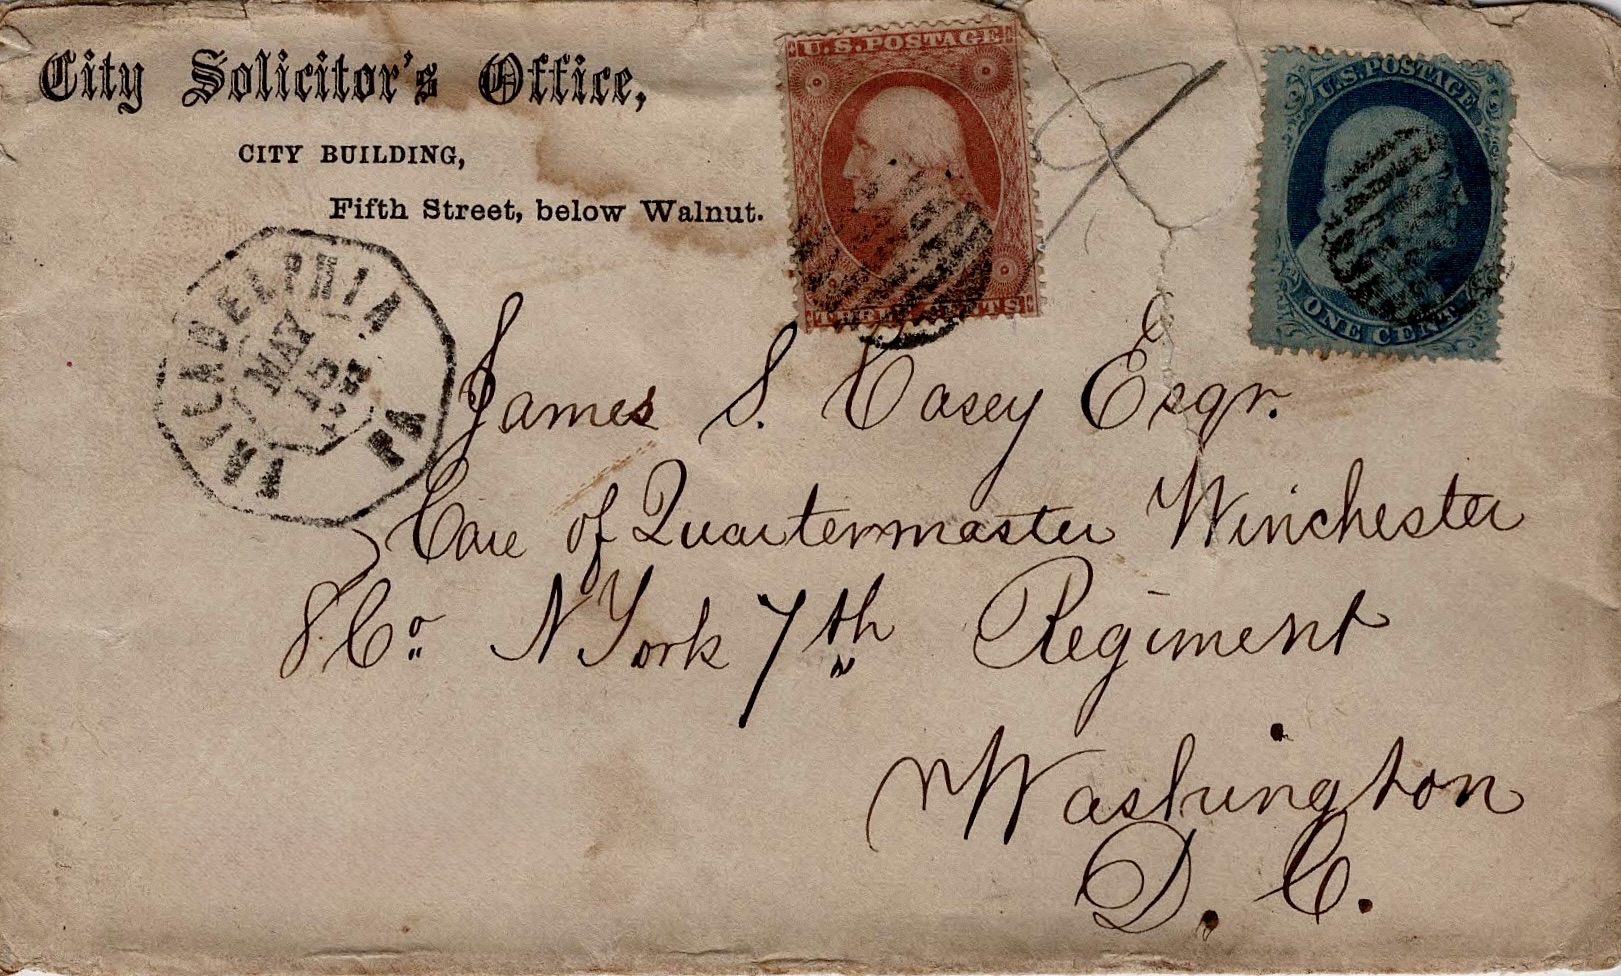 City Solicitor's Office,
CITY BUILDING,
Fifth Street, below Walnut.
U.S. POSTAGE
THREE CENTS
U.S. POSTAGE
ONE CENT
PHILADELPHIA PA
MAY
15
James S. Casey Esqr.
Care of Quartermaster Winchester
8 Co. N York 7th Regiment
Washington
D. C.